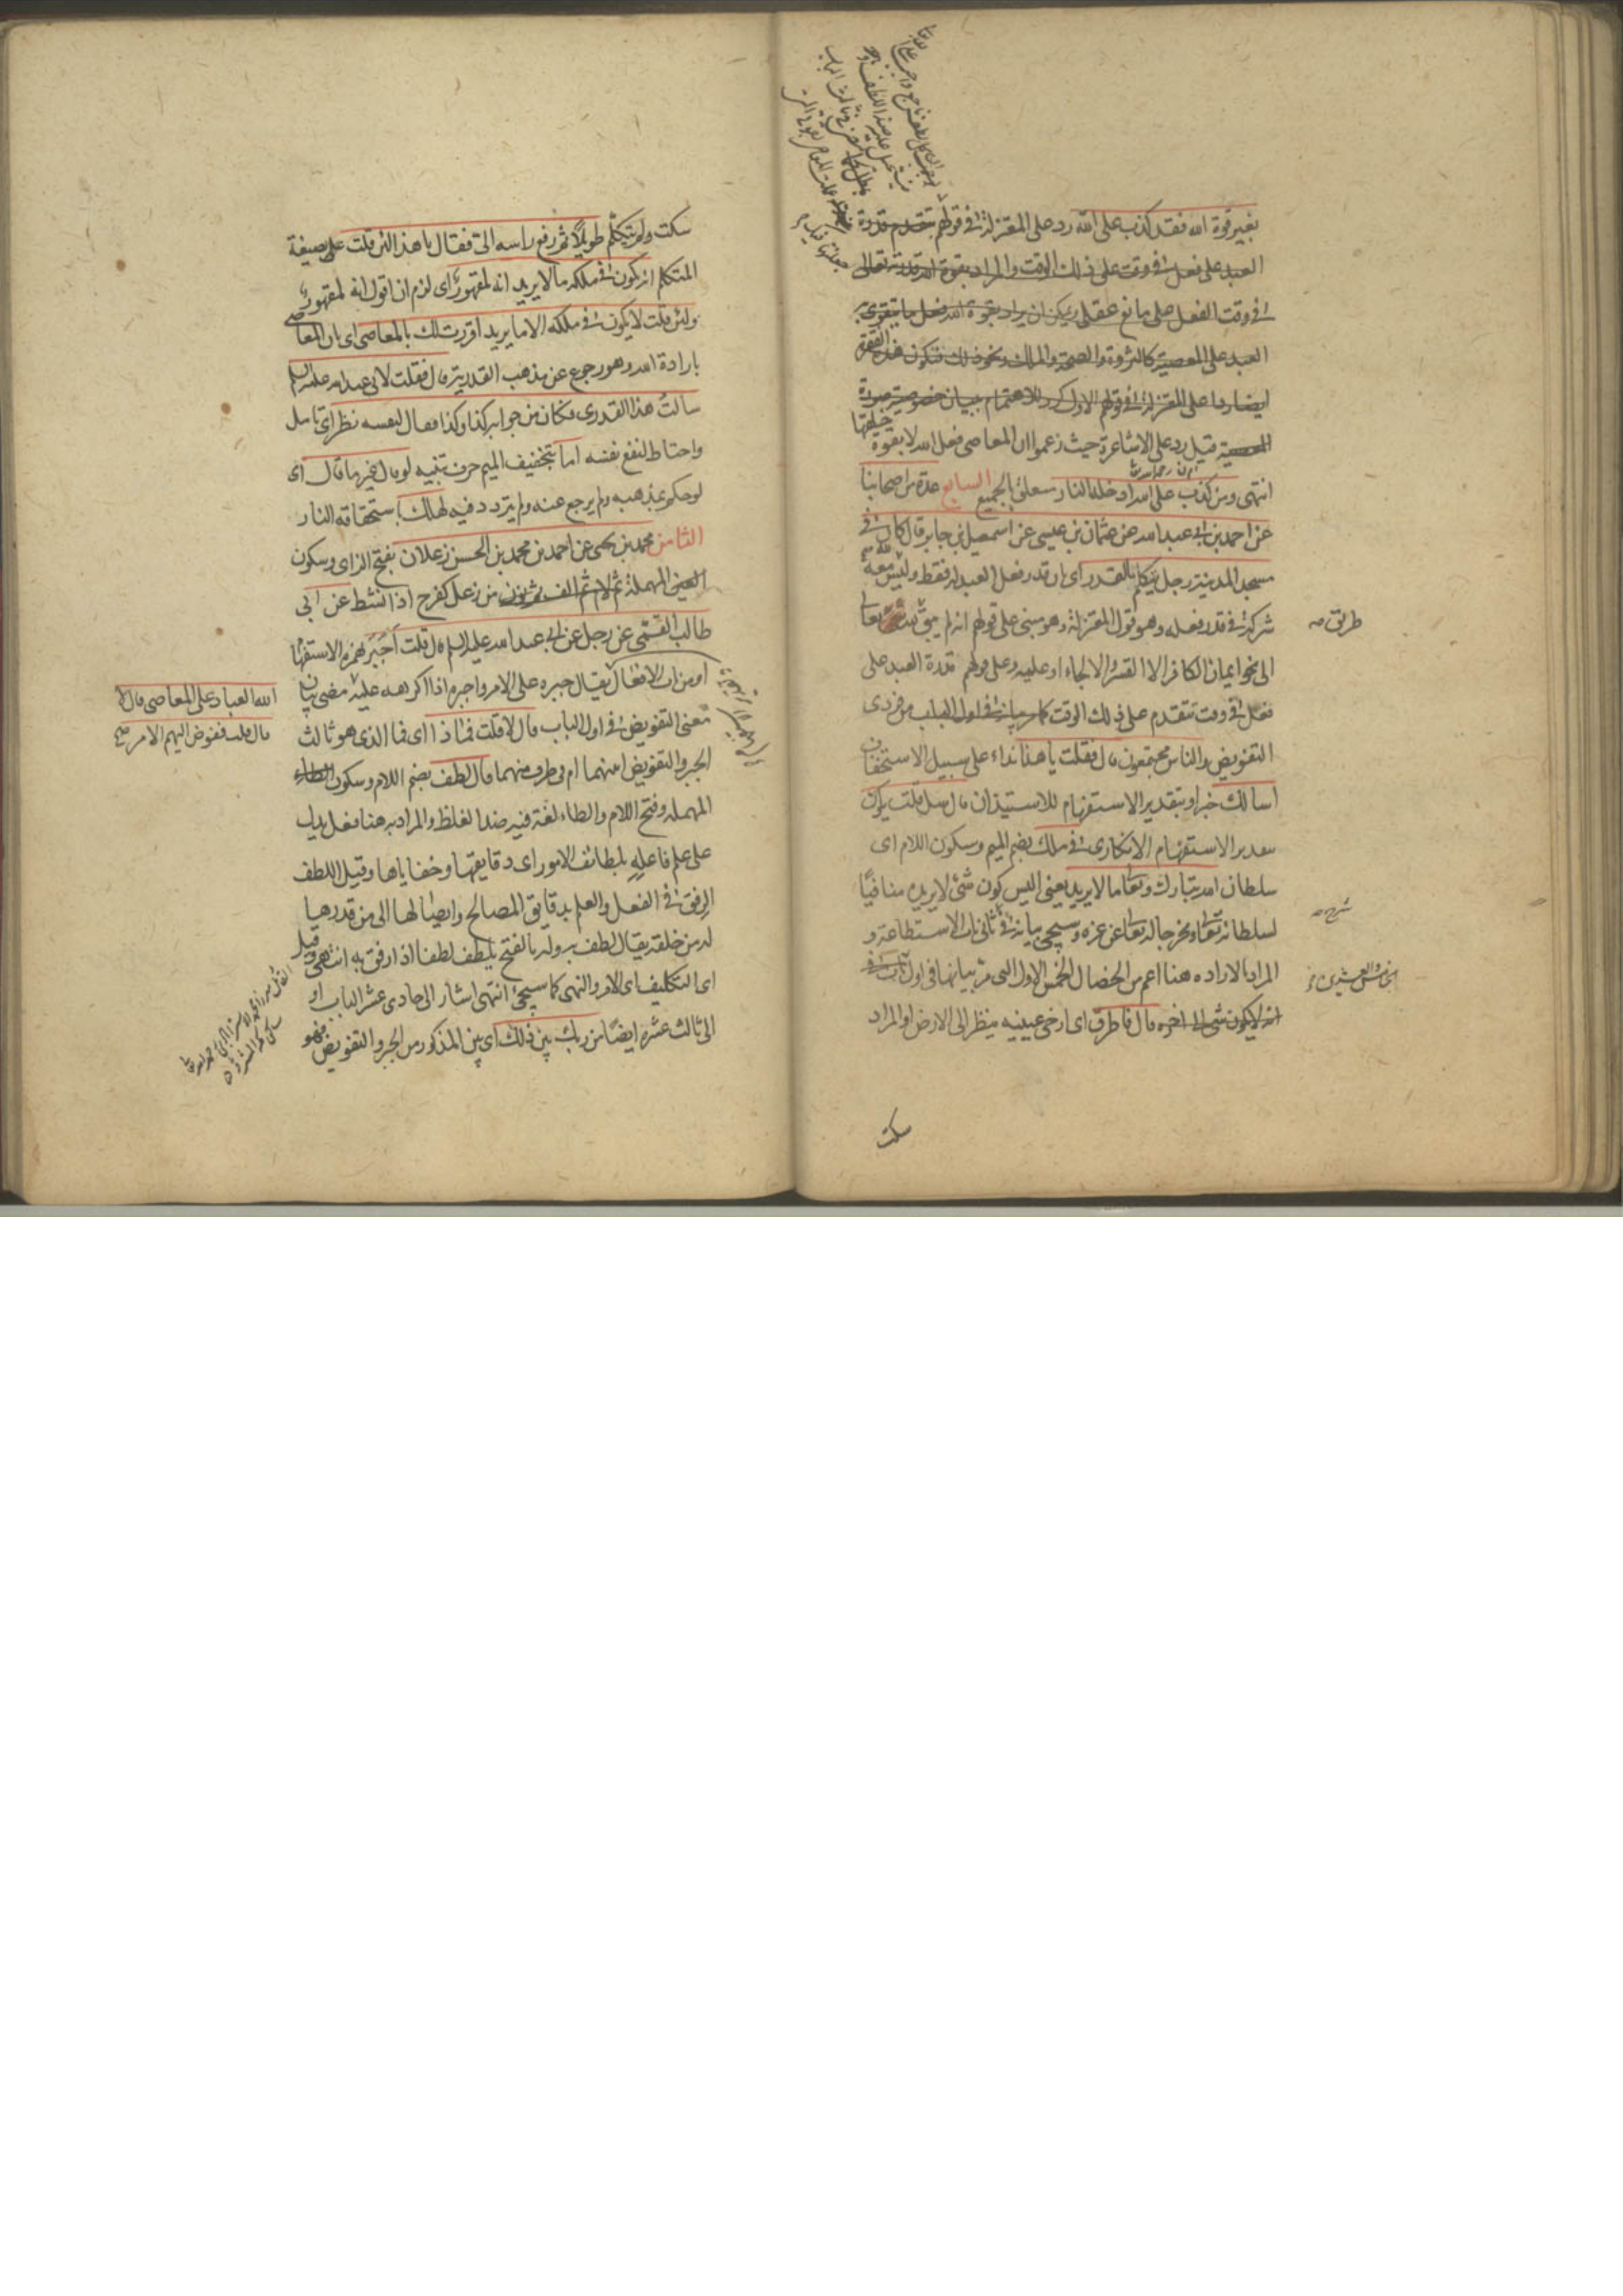 بغير قوة الله فقد كذب على الله رد على المعتزلة في قولهم بتقدم قدرة
العبد على فعل في وقت على ذلك الوقت والمراد بقوة الله قدرته تعالى
في وقت الفعل على ما نع عقلي ويمكن ان يراد بقوة الله فعل ما يتقوى به
العبد على المعصية كالثروة والصحة والمال ونحو ذلك فتكون هذه الفقرة
ايضا ردا على المعتزلة في قولهم الاول كرر للاهتمام ببيان خصوصية
المعصية قيل رد على الاشاعرة حيث زعموا ان المعاصي فعل الله لا بقوة خلقها
انتهى ومن كذب على الله ادخله الله النار متعلق بالجميع السابع عدة من اصحابنا
عن احمد بن ابي عبد الله عن عثمان بن عيسى عن اسمعيل بن جابر قال كان في
مسجد المدينة رجل يتكلم بالقدر اي بان قدر فعل العبد له فقط وليس معه
شركة في قدر فعله وهو قول المعتزلة وهو مبني على قولهم انه لم يبق تعالى
طريق
الى نحو ايمان الكافر الا القسر والالجاء او عليه وعلى قولهم قدرة العبد على
فعل في وقت تتقدم على ذلك الوقت كما مر بيانه في اول الباب من فردي
التفويض والناس مجتمعون قال فقلت يا هذا نداء على سبيل الاستخفاف
اسالك خبر او بتقدير الاستفهام للاستيذان قال سل قلت يكون
بتقدير الاستفهام الانكاري في ملك بضم الميم وسكون اللام اي
سلطان الله تبارك وتعالى ما لا يريد يعني اليس كون شئ لا يريده منافيًا
لسلطانه تعالى ومخرجا له تعالى عن عزه وسيجئ بيانه في ثاني باب الاستطاعة و
شرح
المراد بالاراده هنا اعم من الخصال الخمس الاول التي مر بيانها في اول باب في
الخامس والعشرين
انه لا يكون شئ الى اخره قال فاطرق اي ارخى عينيه ينظر الى الارض او المراد
سكت
سكت ولم يتكلم طويلًا ثم رفع راسه الي فقال يا هذا لئن قلت على صيغة
المتكلم انه يكون في ملكه ما لا يريد انه لمقهور اي لزم ان اقول انه لمقهور
ولئن قلت لا يكون في ملكه الا ما يريد اقررت لك بالمعاصي اي بان المعاصي
بارادة الله وهو رجوع عن مذهب القدرية قال فقلت لابي عبد الله عليه السلم
سالت هذا القدري فكان من جوابه كذا وكذا فقال لنفسه نظر اي تامل
واحتاط لنفع نفسه اما بتخفيف الميم حرف تنبيه لو قال غير ما قال اي
لو حكم بمذهبه ولم يرجع عنه ولم يتردد فيه لهلك باستحقاقه النار
الثامن محمد بن يحيى عن احمد بن محمد بن الحسن زعلان بفتح الزاي وسكون
العين المهملة ثم لام ثم الف ونون من زعل كفرح اذا نشط عن ابي
طالب القمي عن رجل عن ابي عبد الله عليه السلم قال قلت اجبر بهمزه الاستفهام
او من باب الافعال يقال جبره على الامر واجبره اذا اكرهه عليه مضى بيان
الله العباد على المعاصي قال لا
قال قلت ففوض اليهم الامر صح
معنى التفويض في اول الباب قال لا قلت فماذا اي فما الذي هو ثالث
الجبر والتفويض امنهما ام في طرف منهما قال لطف بضم اللام وسكون الطاء
المهمله وفتح اللام والطاء لغة فيه ضد الغلظ والمراد به هنا فعل يدل
على علم فاعله بلطائف الامور اي دقايقها وخفاياها وقيل اللطف
الرفق في الفعل والعلم بدقايق المصالح وايصالها الى من قدرها
له من خلقه يقال لطف به وله بالفتح يلطف لطفا اذا رفق به انتهى وقيل
اي التكليف اي الامر والنهي كما سيجئ انتهى اشار الى حادي عشر الباب او
الى ثالث عشره ايضًا من ربك بين ذلك اي بين المذكور من الجبر والتفويض فهو